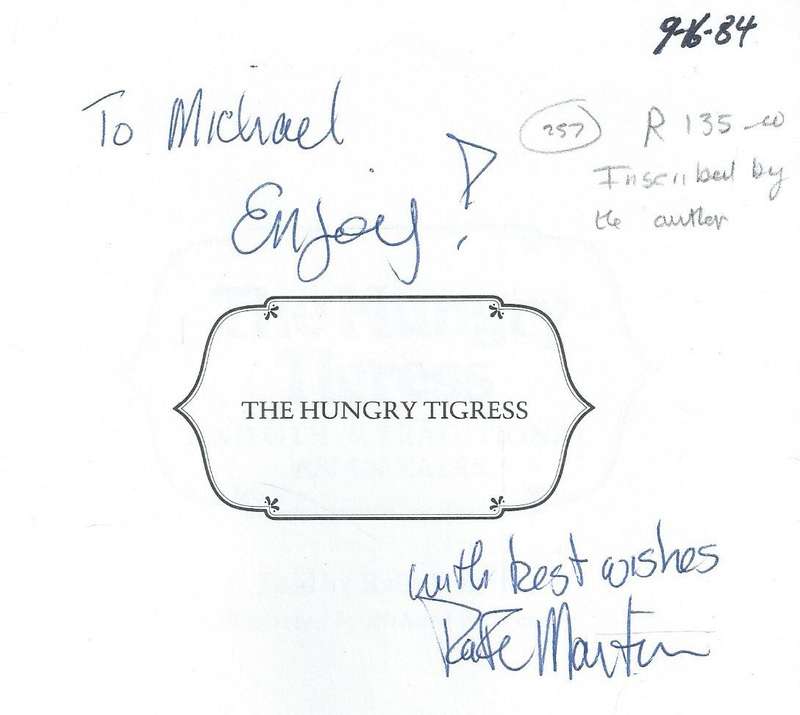 9-16-84
To Michael
257 R 135-00
Inscribed by
the author
Enjoy!
THE HUNGRY TIGRESS
with best wishes
Rafe Martin